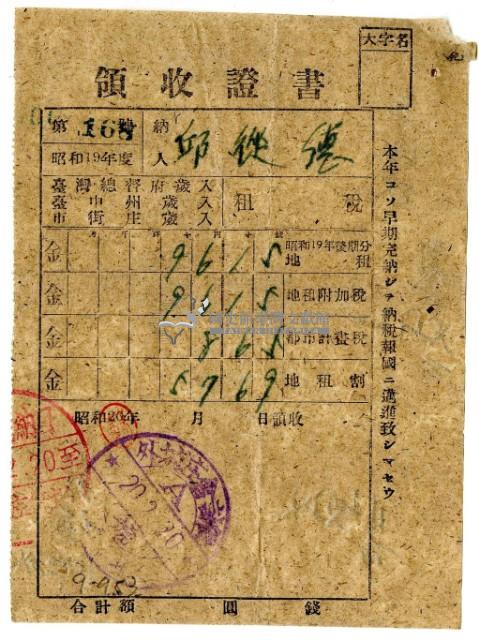 大字名
領收證書
第 168 號
昭和19年度
納
人
邱 德
臺灣總督府歲入
臺中州歲入
市街庄歲入
租 稅
昭和19年後期分
金 9615 地租
金 9615 地租附加稅
金 865 都市計畫稅
金 5769 地租割
昭和20年 月 日領收
A
20.2.20
9-953
合計額 圓 錢
本年コソ早期完納シテ納稅報國ニ邁進致シマセウ